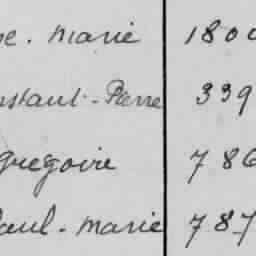 e. marie 1800
nstant-Pierre 339
gregoire 786
Paul-marie 787